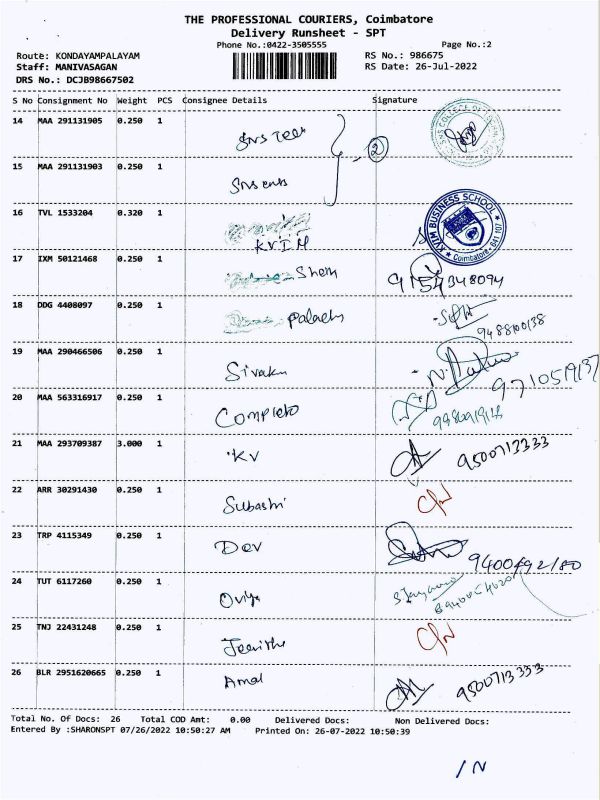 THE PROFESSIONAL COURIERS, Coimbatore
Delivery Runsheet - SPT
Phone No.:0422-3505555 Page No.:2
Route: KONDAYAMPALAYAM RS No.: 986675
Staff: MANIVASAGAN RS Date: 26-Jul-2022
DRS No.: DCJB98667502
S No Consignment No Weight PCS Consignee Details Signature
14 MAA 291131905 0.250 1 SNS Tech
2
15 MAA 291131903 0.250 1 SNS
16 TVL 1533204 0.320 1 KVIM
KVIM BUSINESS SCHOOL
Coimbatore - 641 107
17 IXM 50121468 0.250 1 Shem 9154348094
18 DDG 4408097 0.250 1 9488100138
19 MAA 290466506 0.250 1 Sivaku 9710519137
20 MAA 563316917 0.250 1 Completo
21 MAA 293709387 3.000 1 KV 9500713333
22 ARR 30291430 0.250 1 Subashi C/N
23 TRP 4115349 0.250 1 Dev
24 TUT 6117260 0.250 1 Oviya
25 TNJ 22431248 0.250 1 C/N
26 BLR 2951620665 0.250 1 Amal 9500713333
Total No. Of Docs: 26 Total COD Amt: 0.00 Delivered Docs: Non Delivered Docs:
Entered By :SHARONSPT 07/26/2022 10:50:27 AM Printed On: 26-07-2022 10:50:39
/ N